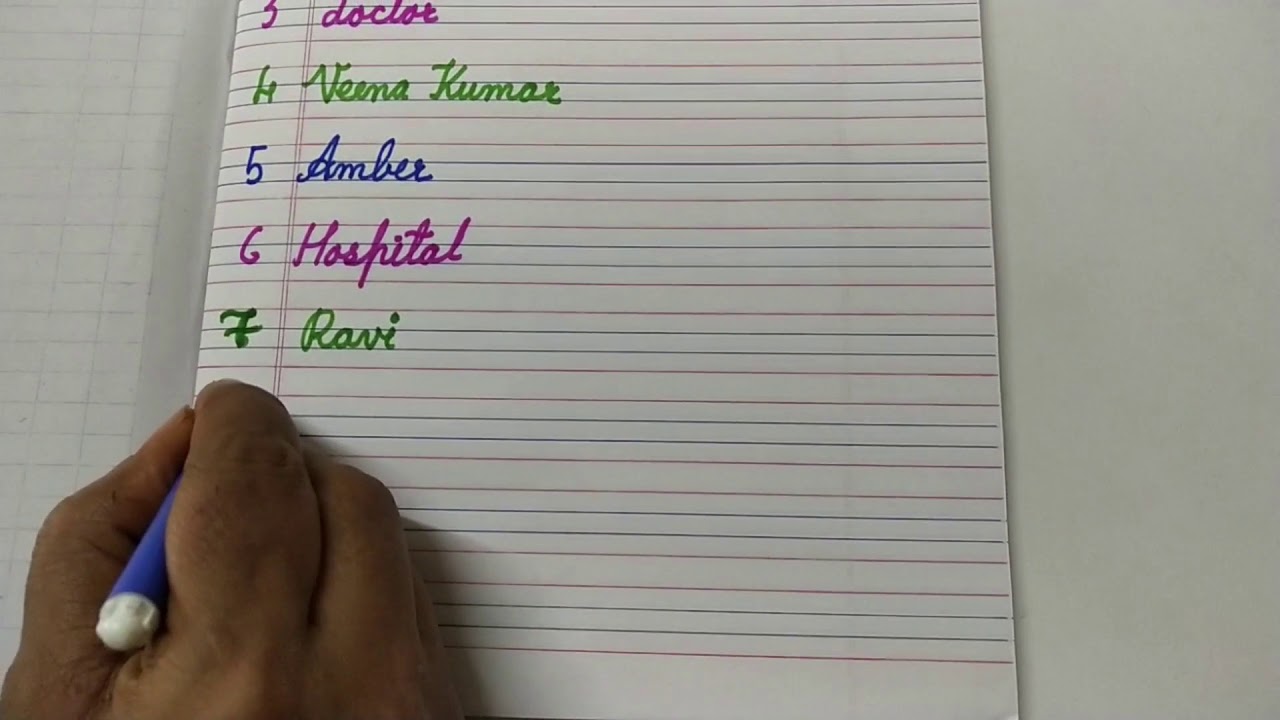 3 doctor
4 Veena Kumar
5 Amber
6 Hospital
7 Ravi